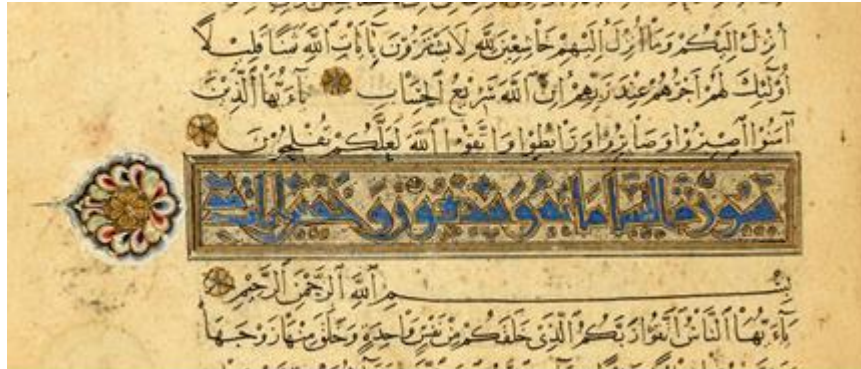 أُنزِلَ إِلَيْكُمْ وَمَا أُنزِلَ إِلَيْهِمْ خَاشِعِينَ لِلَّهِ لَا يَشْتَرُونَ بِآيَاتِ اللَّهِ ثَمَنًا قَلِيلًا
أُولَٰئِكَ لَهُمْ أَجْرُهُمْ عِندَ رَبِّهِمْ إِنَّ اللَّهَ سَرِيعُ الْحِسَابِ يَاأَيُّهَا الَّذِينَ
آمَنُوا اصْبِرُوا وَصَابِرُوا وَرَابِطُوا وَاتَّقُوا اللَّهَ لَعَلَّكُمْ تُفْلِحُونَ
سورة النسا مائة و وخمس ايات
بِسْمِ اللَّهِ الرَّحْمَٰنِ الرَّحِيمِ
يَاأَيُّهَا النَّاسُ اتَّقُوا رَبَّكُمُ الَّذِي خَلَقَكُم مِّن نَّفْسٍ وَاحِدَةٍ وَخَلَقَ مِنْهَا زَوْجَهَا